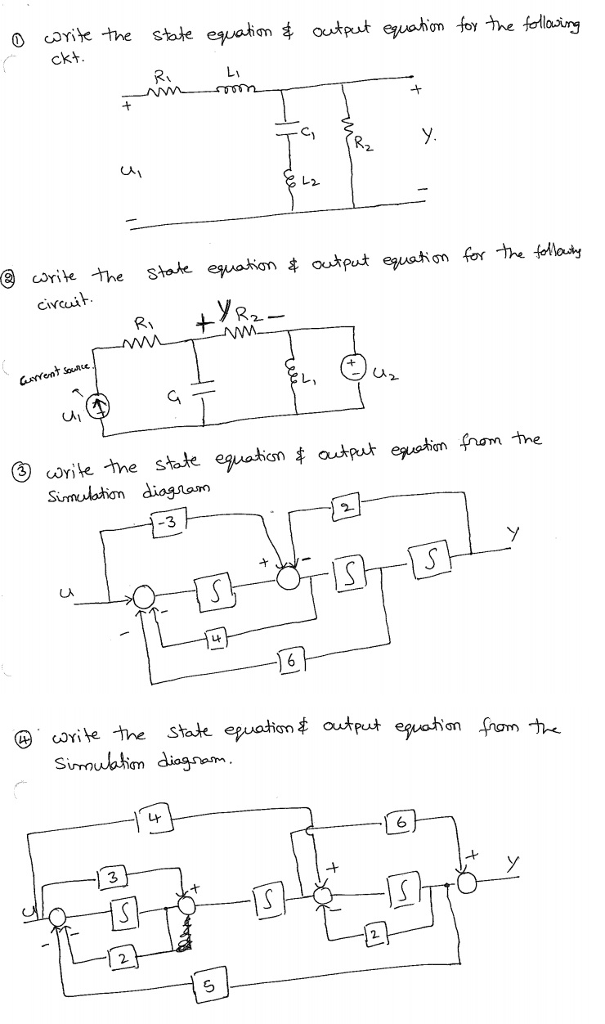 ① write the state equation & output equation for the following
ckt.
R1 L1
+ +
C1 R2 Y.
u1
L2
- -
② write the state equation & output equation for the following
circuit.
R1 + Y R2 -
current source.
C1 L1 + - u2
u1
③ write the state equation & output equation from the
Simulation diagram
-3 2
+ - Y
u ∫ ∫ ∫
- -
4
6
④ write the state equation & output equation from the
Simulation diagram.
4 6
3 + + + Y
u ∫ ∫ ∫
- - -
2 2
5